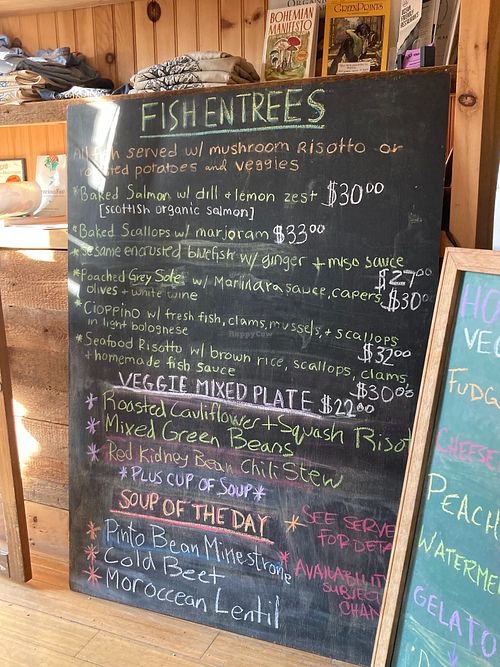 BOHEMIAN
MANIFESTO
GREENPRINTS
FISH ENTREES
fish served w/ mushroom Risotto or
potatoes and veggies
*Baked Salmon w/ dill + lemon zest $30.00
[scottish organic salmon]
*Baked Scallops w/ marjoram $33.00
*Sesame encrusted bluefish w/ ginger + miso sauce
$27.00
*Poached Grey Sole w/ Marinara sauce, capers,
olives + white wine $30.00
*Cioppino w/ fresh fish, clams, mussels, + scallops
in light bolognese $32.00
*Seafood Risotto w/ brown rice, scallops, clams,
+ homemade fish sauce $30.00
VEGGIE MIXED PLATE $22.00
* Roasted Cauliflower + Squash Risot
* Mixed Green Beans
* Red Kidney Bean Chili Stew
*PLUS CUP OF SOUP*
SOUP OF THE DAY
* Pinto Bean Minestrone
* Cold Beet
* Moroccean Lentil
* SEE SERVE
FOR DETA
* AVAILABILIT
SUBJEC
CHAN
HO
VEG
FUDG
CHEESE
PEACH
WATERME
GELATO
HappyCow